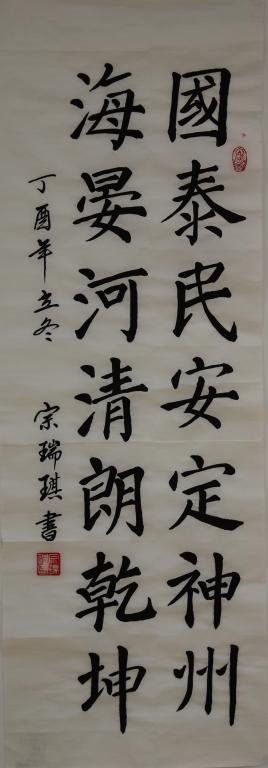 國泰民安定神州
海晏河清朗乾坤
丁酉年立冬 宗瑞琪書